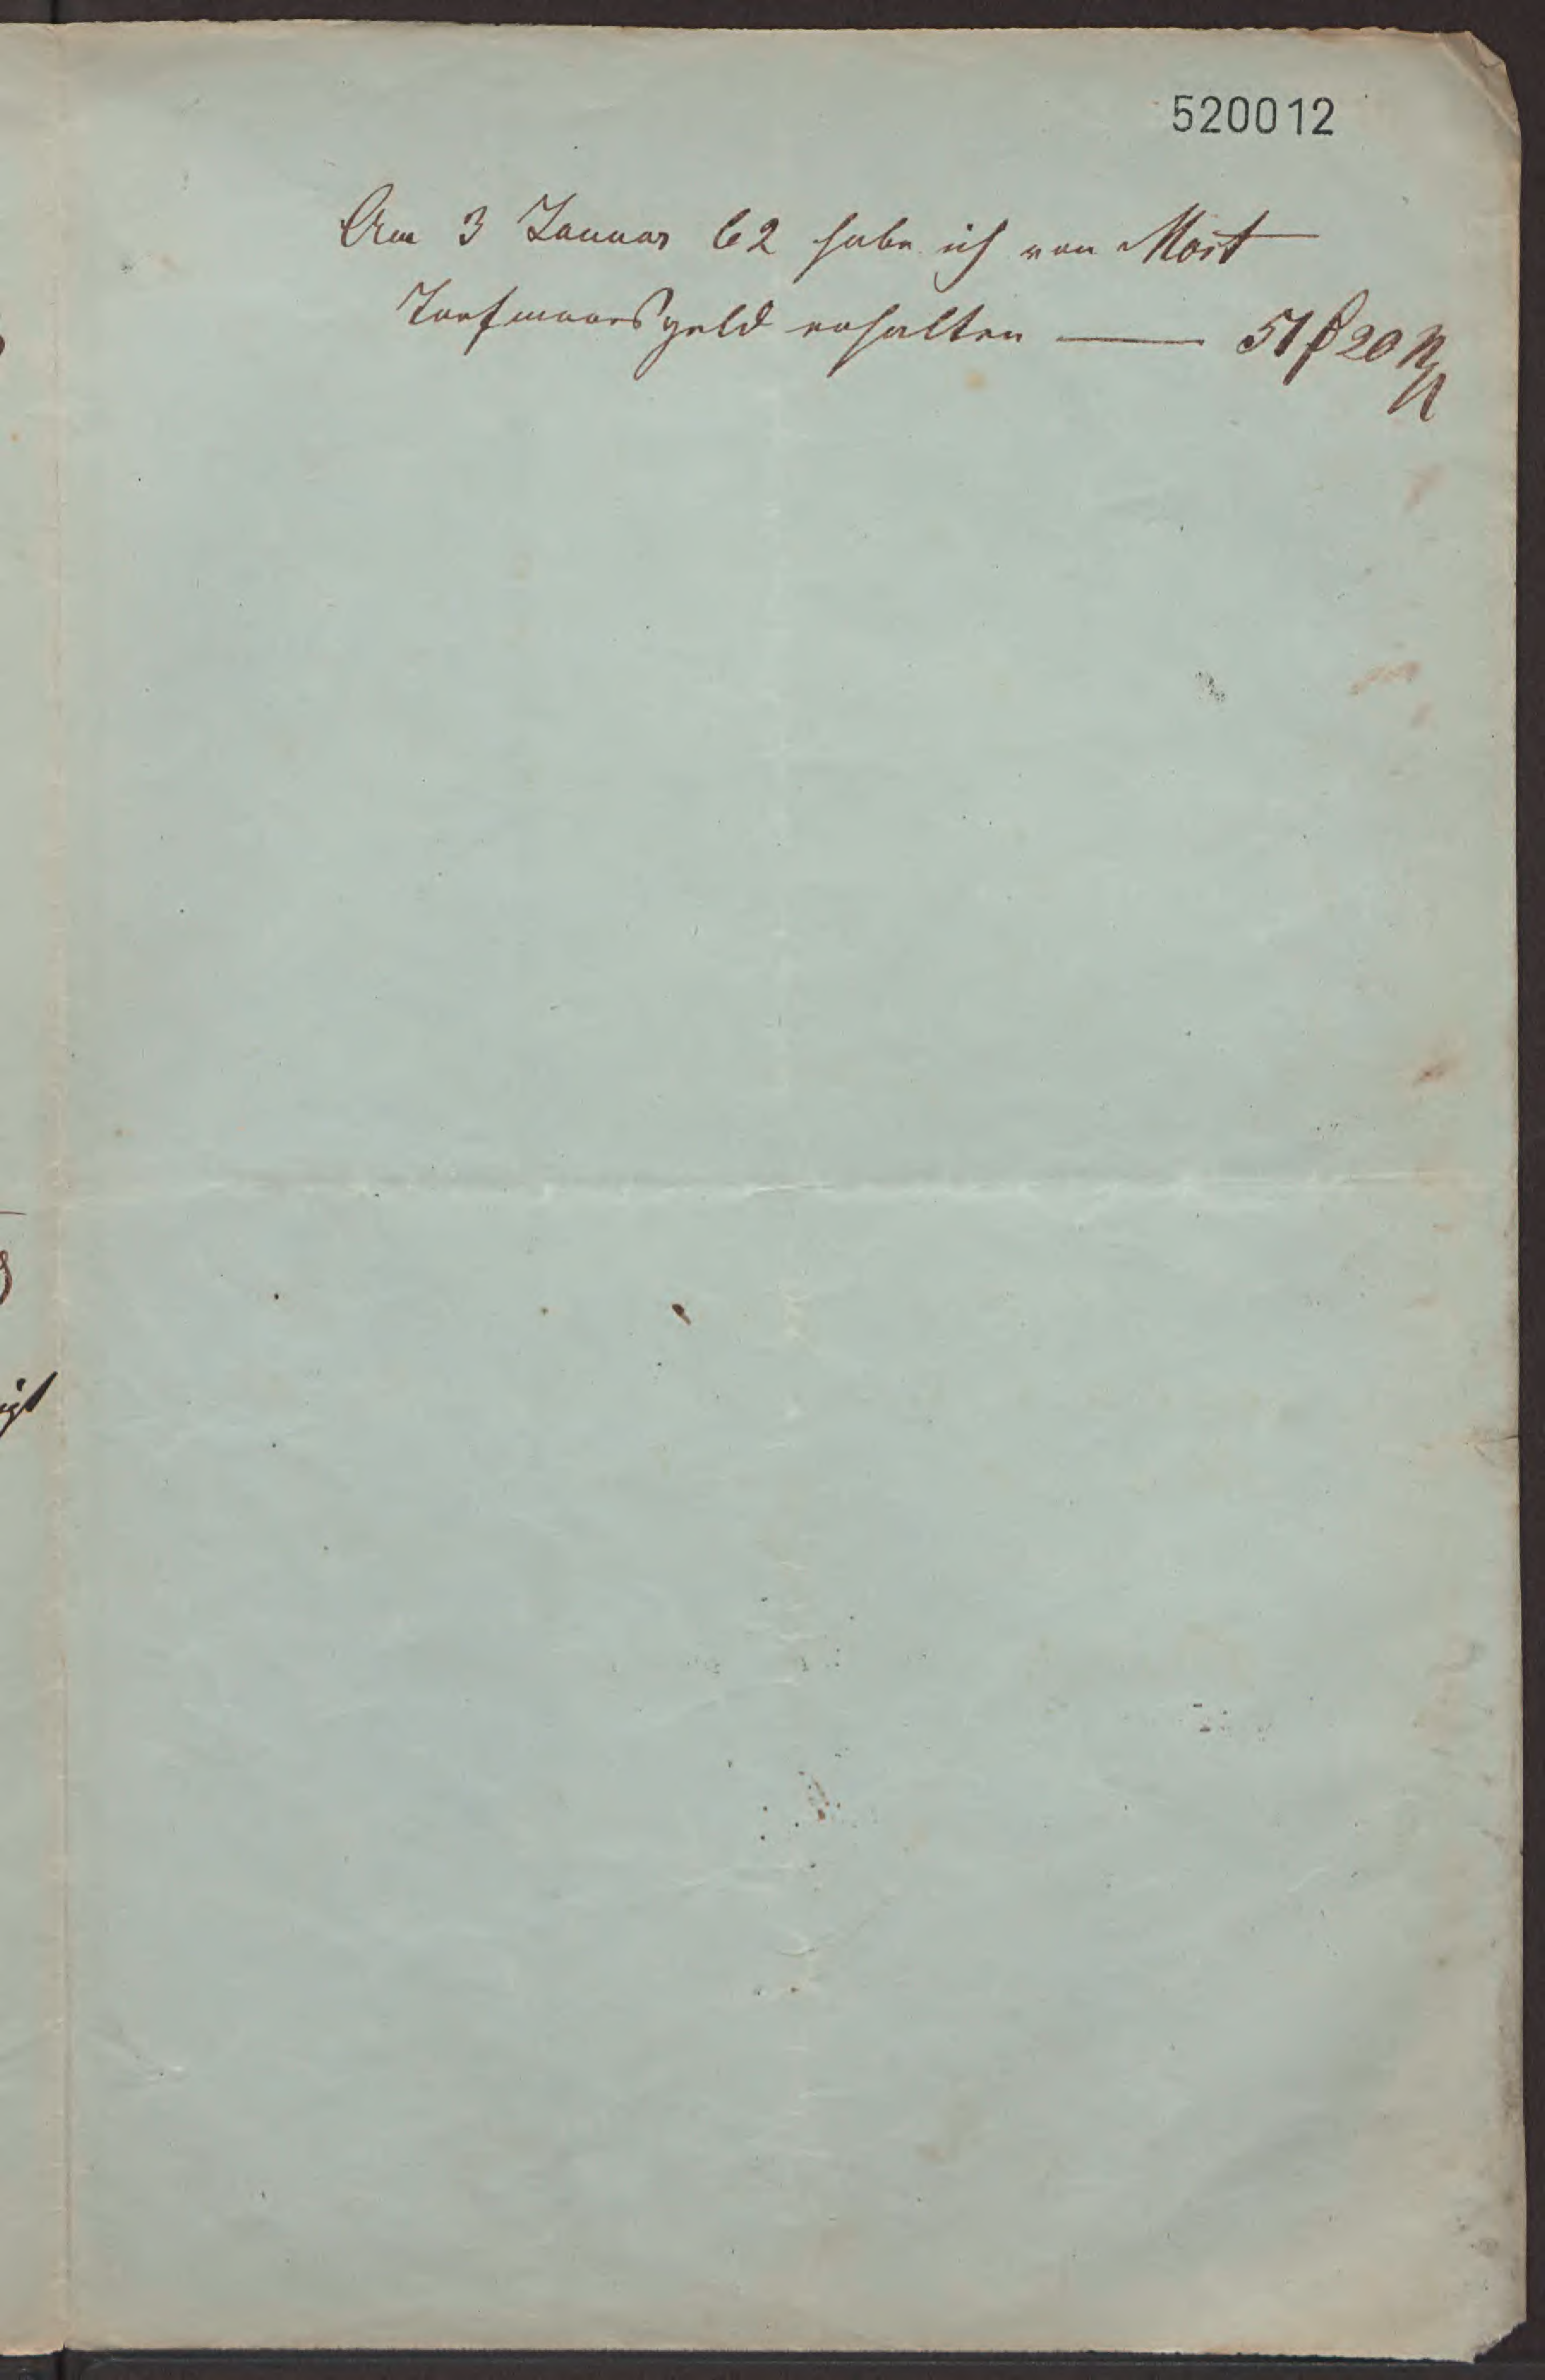 520012
Am 3 Januar 62 habe ich von Mort
Torfmoorsgeld erhalten — 51 f 20